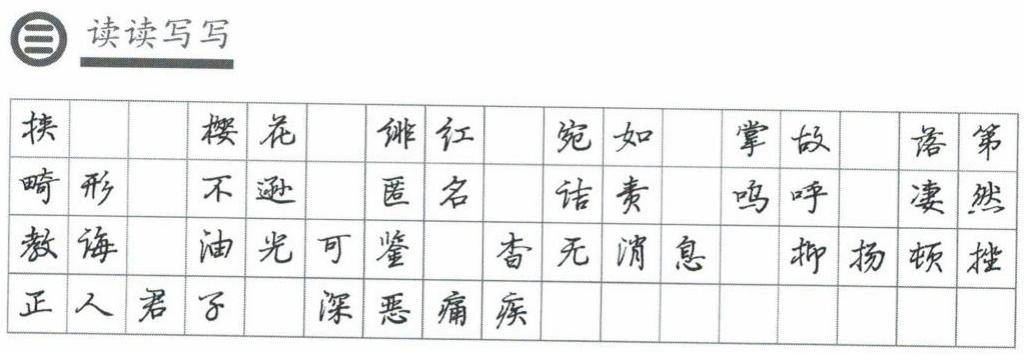 读读写写
挟 樱花 绯红 宛如 掌故 落第
畸形 不逊 匿名 诘责 呜呼 凄然
教诲 油光可鉴 杳无消息 抑扬顿挫
正人君子 深恶痛疾